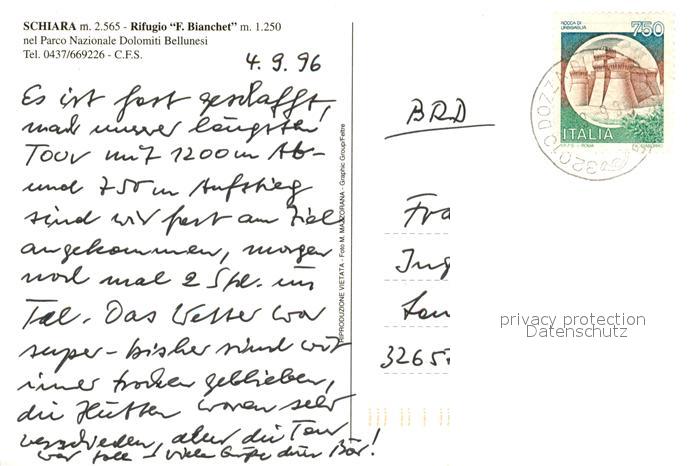 SCHIARA m. 2.565 - Rifugio "F. Bianchet" m. 1.250
nel Parco Nazionale Dolomiti Bellunesi
Tel. 0437/669226 - C.F.S.
4.9.96
Es ist fast geschafft,
nach unserer längsten
Tour mit 1200 m Ab-
und 750 m Aufstieg
sind wir fast am Ziel
angekommen, morgen
noch mal 2 Std. ins
Tal. Das Wetter war
super - bisher sind wir
immer trocken geblieben,
die Hütten waren sehr
verschieden, aber die Tour
war toll - viele Grüße dein Bär!
RIPRODUZIONE VIETATA - Foto M. MAZZORANA - Graphic Group/Feltre
ROCCA DI
URBISAGLIA
750
ITALIA
32010
BRD
Fra
Ing
3265
privacy protection
Datenschutz